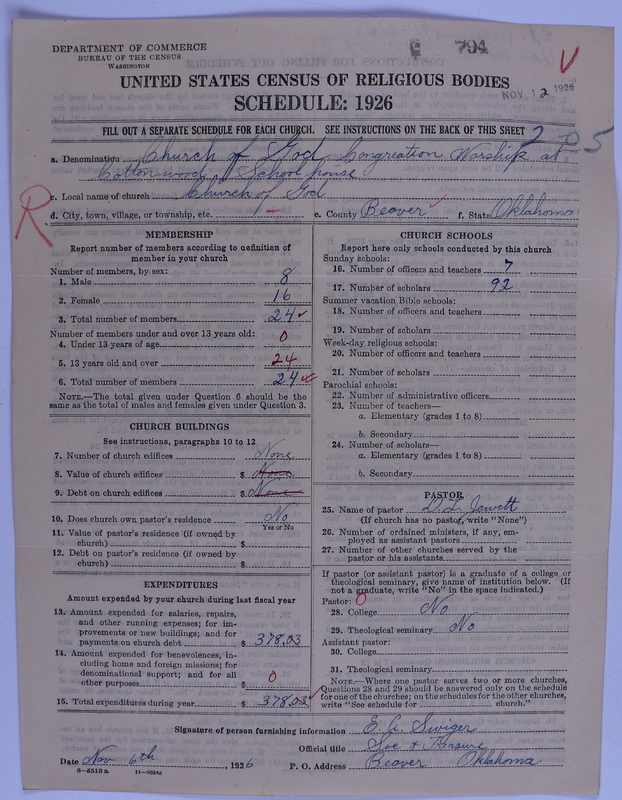 DEPARTMENT OF COMMERCE
BUREAU OF THE CENSUS
WASHINGTON
794
NOV 12 1926
UNITED STATES CENSUS OF RELIGIOUS BODIES
SCHEDULE: 1926
FILL OUT A SEPARATE SCHEDULE FOR EACH CHURCH. SEE INSTRUCTIONS ON THE BACK OF THIS SHEET
205
a. Denomination Church of God Congreation Worship at
Cottonwood School house
c. Local name of church Church of God
R
d. City, town, village, or township, etc. — e. County Beaver f. State Oklahoma
MEMBERSHIP
Report number of members according to definition of
member in your church
Number of members, by sex:
1. Male 8
2. Female 16
3. Total number of members 24
Number of members under and over 13 years old:
4. Under 13 years of age 0
5. 13 years old and over 24
6. Total number of members 24
NOTE.—The total given under Question 6 should be the
same as the total of males and females given under Question 3.
CHURCH BUILDINGS
See instructions, paragraphs 10 to 12
7. Number of church edifices None
8. Value of church edifices $ None
9. Debt on church edifices $ None
10. Does church own pastor's residence No
Yes or No
11. Value of pastor's residence (if owned by
church) $
12. Debt on pastor's residence (if owned by
church) $
EXPENDITURES
Amount expended by your church during last fiscal year
13. Amount expended for salaries, repairs,
and other running expenses; for im-
provements or new buildings; and for
payments on church debt $ 378.03
14. Amount expended for benevolences, in-
cluding home and foreign missions; for
denominational support; and for all
other purposes $ 0
15. Total expenditures during year $ 378.03
CHURCH SCHOOLS
Report here only schools conducted by this church
Sunday schools:
16. Number of officers and teachers 7
17. Number of scholars 92
Summer vacation Bible schools:
18. Number of officers and teachers
19. Number of scholars
Week-day religious schools:
20. Number of officers and teachers
21. Number of scholars
Parochial schools:
22. Number of administrative officers
23. Number of teachers—
a. Elementary (grades 1 to 8)
b. Secondary
24. Number of scholars—
a. Elementary (grades 1 to 8)
b. Secondary
PASTOR
25. Name of pastor D. L. Jewett
(If church has no pastor, write "None")
26. Number of ordained ministers, if any, em-
ployed as assistant pastors
27. Number of other churches served by the
pastor or his assistants
If pastor (or assistant pastor) is a graduate of a college or
theological seminary, give name of institution below. (If
not a graduate, write "No" in the space indicated.)
Pastor: 0
28. College No
29. Theological seminary No
Assistant pastor:
30. College
31. Theological seminary
NOTE.—Where one pastor serves two or more churches,
Questions 28 and 29 should be answered only on the schedule
for one of the churches; on the schedules for the other churches,
write "See schedule for church."
Signature of person furnishing information E. A. Swiger
Official title Sec &
Date Nov 6th, 1926 P. O. Address Beaver Oklahoma
8—5519a 11—9034c